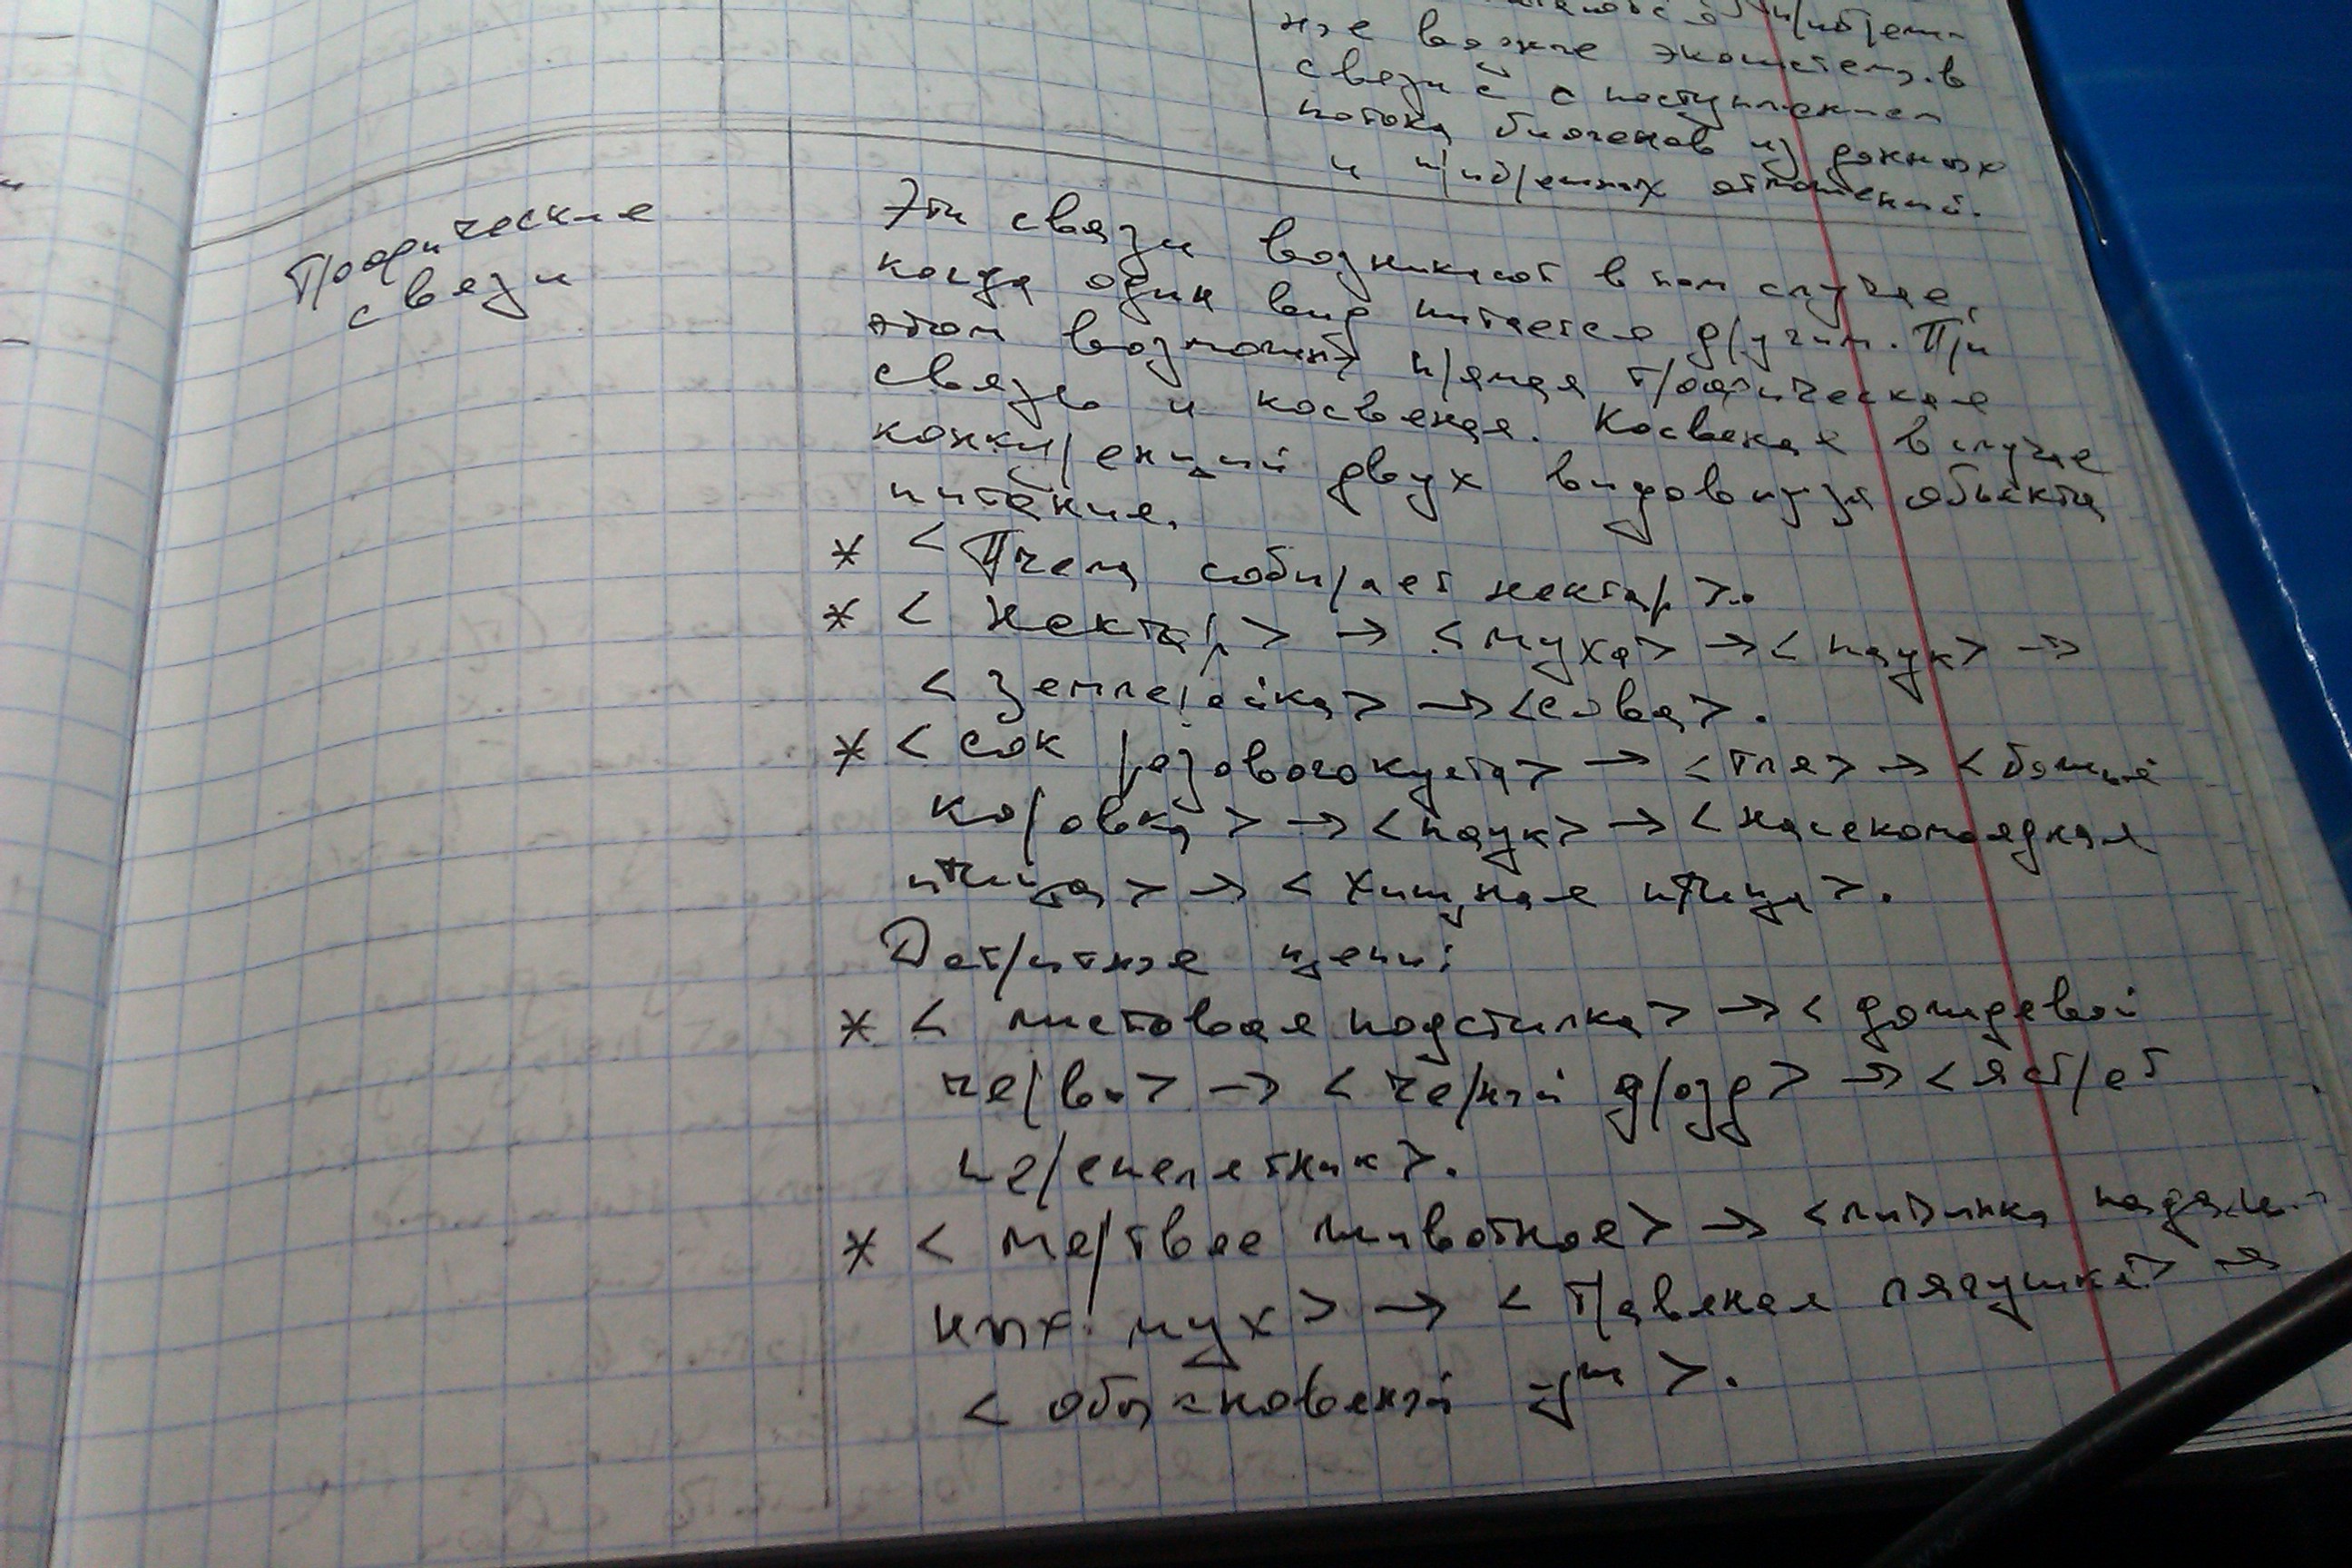 ные важные экосистемы. в
связи с поступлением
потока биогенов из донных
и отношений.
Трофические
связи
Эти связи возникают в том случае,
когда один вид питается другим. При
этом возможны прямая трофическая
связь и косвеная. Косвеная в случае
конкуренций двух видов из за объекта
питание.
* <Пчела собирает нектар>.
* <Нектар> → <муха> → <паук> →
<землеройка> → <сова>.
* <сок розового куста> → <тля> → <божья
коровка> → <паук> → <насекомоядная
птица> → <хищная птица>.
Детритные цепи:
* <листовая подстилка> → <дождевой
червь> → <черный дрозд> → <ястреб
перепелетник>.
* <мертвое животное> → <личинка падаль-
ных мух> → <Травяная лягушка> →
<обыкновенный уж>.